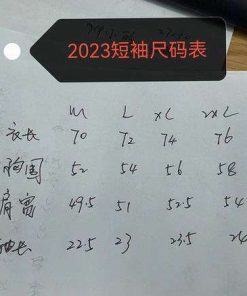 2023短袖尺码表
M L XL 2XL
衣长 70 72 74 76
胸围 52 54 56 58
肩宽 49.5 51 52.5 54
袖长 22.5 23 23.5 24